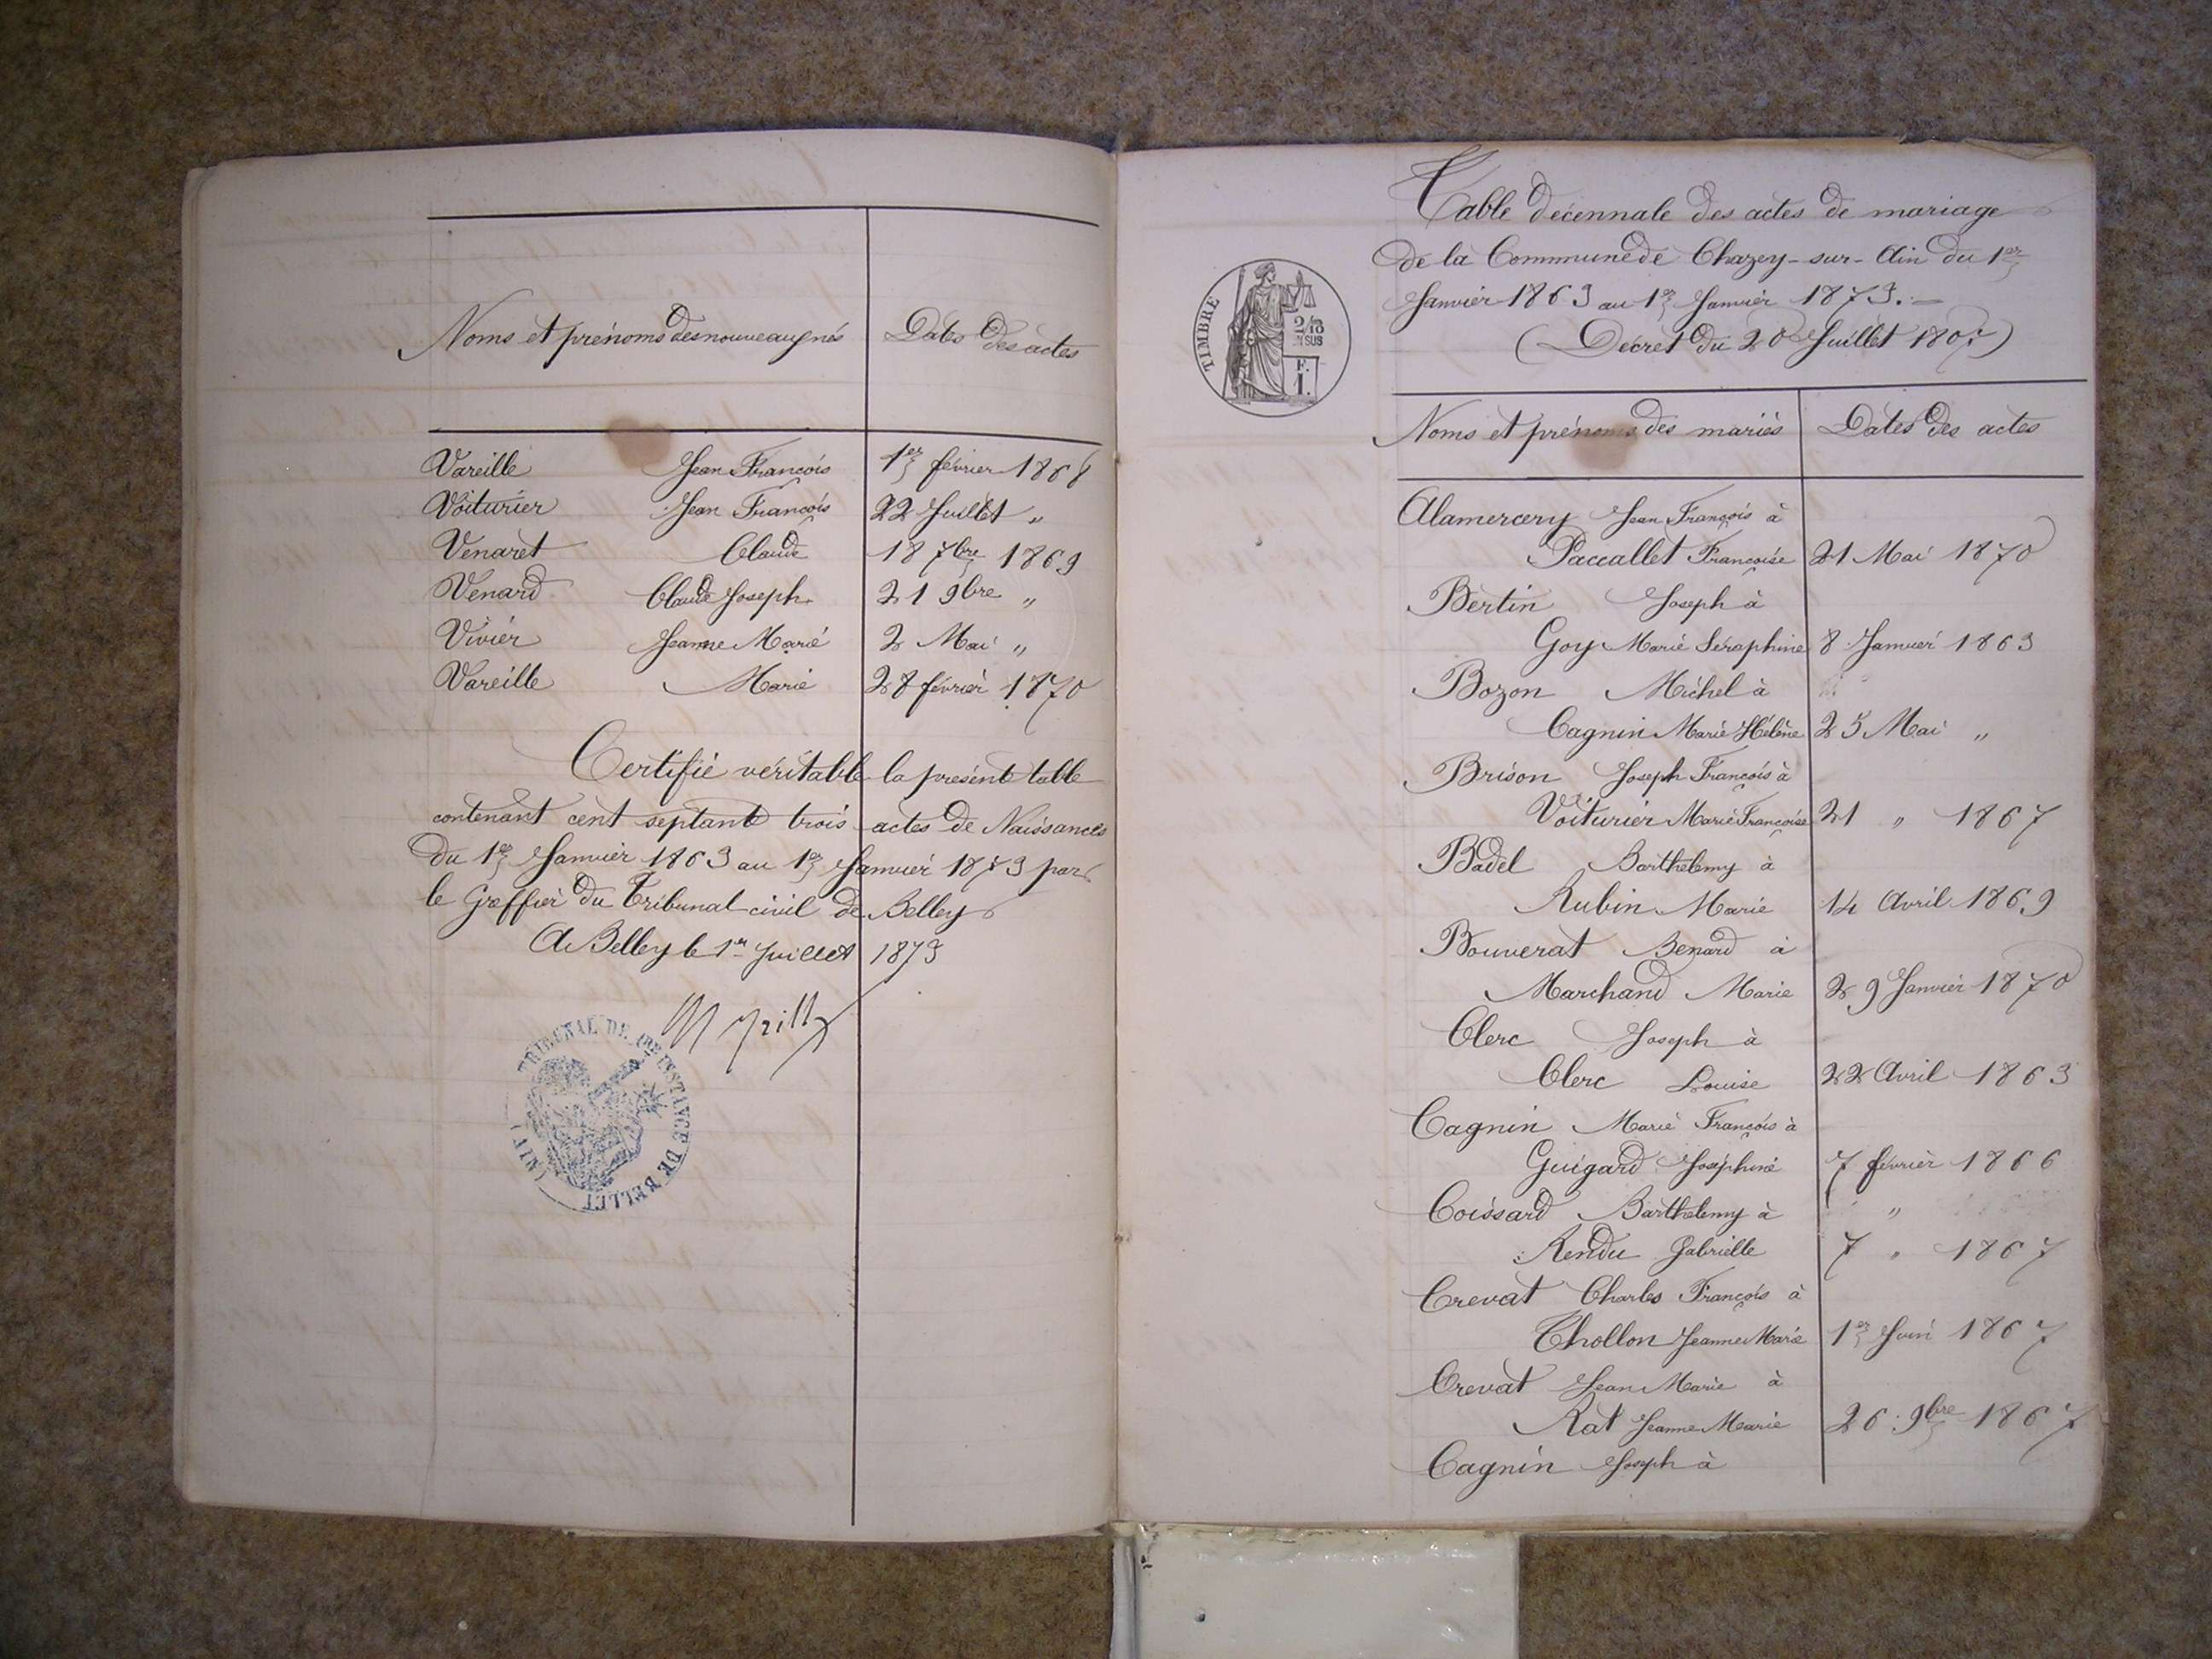 Noms et prénoms des nouveaux nés Dates des actes
Vareille Jean François 1er février 1868
Voiturier Jean François 22 Juillet "
Venaret Claude 18 7bre 1869
Venard Claude Joseph 21 9bre "
Vivier Jeanne Marie 2 Mai "
Vareille Marie 28 février 1870
Certifié véritable la présente table
contenant cent septante trois actes de Naissances
du 1er Janvier 1863 au 1er Janvier 1873 par
le Greffier du Tribunal civil de Belley
A Belley le 1er Juillet 1873
TRIBUNAL DE 1RE INSTANCE DE BELLEY (AIN)
Table décennale des actes de mariage
de la Commune de Chazey-sur-Ain du 1er
Janvier 1863 au 1er Janvier 1873.
(Décret du 20 Juillet 1807)
TIMBRE
2/10
EN SUS
F.
1.
Noms et prénoms des mariés Dates des actes
Alamercery Jean François à
Paccallet Françoise 21 Mai 1870
Bertin Joseph à
Goy Marie Séraphine 8 Janvier 1863
Bozon Michel à
Cagnin Marie Hélène 25 Mai "
Brison Joseph François à
Voiturier Marie Françoise 21 " 1867
Badel Barthelemy à
Rubin Marie 14 Avril 1869
Bouverat Benard à
Marchand Marie 29 Janvier 1870
Clerc Joseph à
Clerc Louise 22 Avril 1863
Cagnin Marie François à
Guigard Joséphine 7 février 1866
Coissard Barthelemy à "
Rendu Gabrielle 7 " 1867
Crevat Charles François à
Thollon Jeanne Marie 1er Juin 1867
Crevat Jean Marie à
Rat Jeanne Marie 26 9bre 1867
Cagnin Joseph à